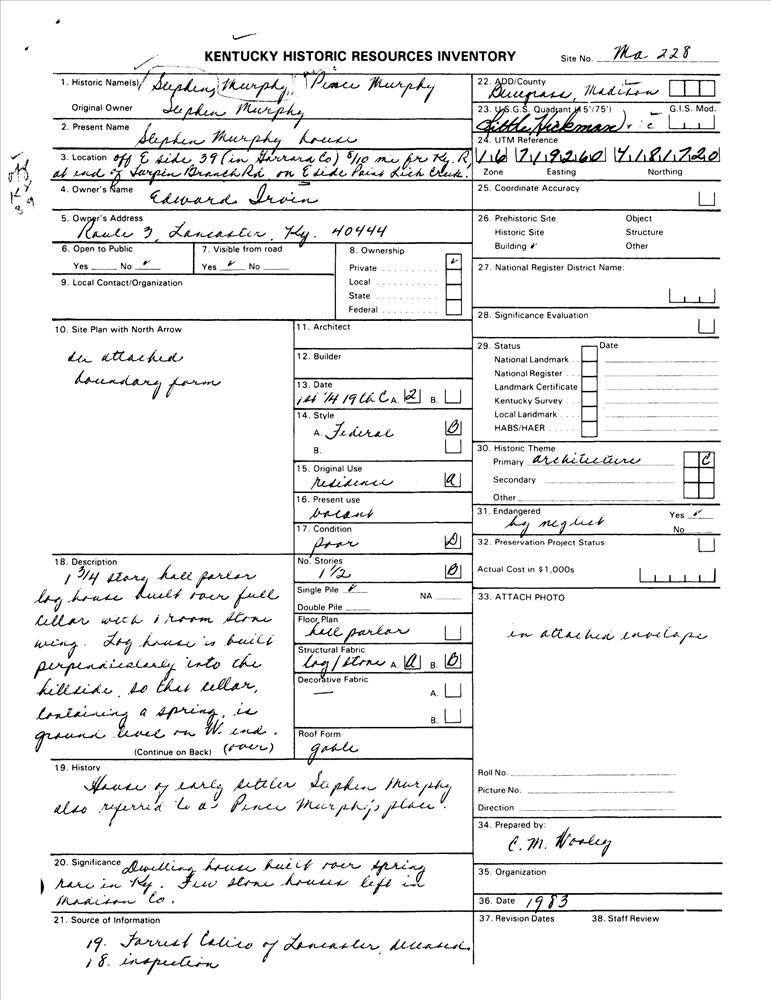 KENTUCKY HISTORIC RESOURCES INVENTORY
Site No. Ma 228
1. Historic Name(s) Stephen Murphy, Pence Murphy
Original Owner Stephen Murphy
2. Present Name Stephen Murphy house
3. Location off E side 39 (in Garrard Co) 8/10 mi fr Ky. R
at end of Turpin Branch Rd on E side Paint Lick Creek.
4. Owner's Name Edward Irvin
5. Owner's Address
Route 3, Lancaster, Ky. 40444
6. Open to Public
Yes No ✓
7. Visible from road
Yes ✓ No
8. Ownership
Private ✓
Local
State
Federal
9. Local Contact/Organization
10. Site Plan with North Arrow
see attached
boundary form
11. Architect
12. Builder
13. Date
1st 1/4 19th C A. 2 B.
14. Style
A. Federal B
B.
15. Original Use
residence A
16. Present use
vacant
17. Condition
poor D
18. Description
1 3/4 story hall parlor
log house built over full
cellar with 1 room stone
wing. Log house is built
perpendicularly into the
hillside, so that cellar,
containing a spring, is
ground level on W. end.
(Continue on Back) (over)
No. Stories
1 1/2 B
Single Pile ✓ NA
Double Pile
Floor Plan
hall parlor
Structural Fabric
log/stone A. A B. B
Decorative Fabric
— A.
B.
Roof Form
gable
19. History
House of early settler Stephen Murphy
also referred to as Pence Murphy's place.
20. Significance Dwelling house built over spring
rare in Ky. Few stone houses left in
Madison Co.
21. Source of Information
19. Forrest Calico of Lancaster, deceased.
18. inspection
22. ADD/County
Bluegrass, Madison
23. U.S.G.S. Quadrant (15'/75') G.I.S. Mod.
(Little Hickman)
24. UTM Reference
16 719260 4181720
Zone Easting Northing
25. Coordinate Accuracy
26. Prehistoric Site Object
Historic Site Structure
Building ✓ Other
27. National Register District Name:
28. Significance Evaluation
29. Status Date
National Landmark
National Register
Landmark Certificate
Kentucky Survey
Local Landmark
HABS/HAER
30. Historic Theme
Primary architecture C
Secondary
Other
31. Endangered Yes ✓
by neglect No
32. Preservation Project Status
Actual Cost in $1,000s
33. ATTACH PHOTO
in attached envelope
Roll No.
Picture No.
Direction
34. Prepared by:
C. M. Wooley
35. Organization
36. Date 1983
37. Revision Dates 38. Staff Review